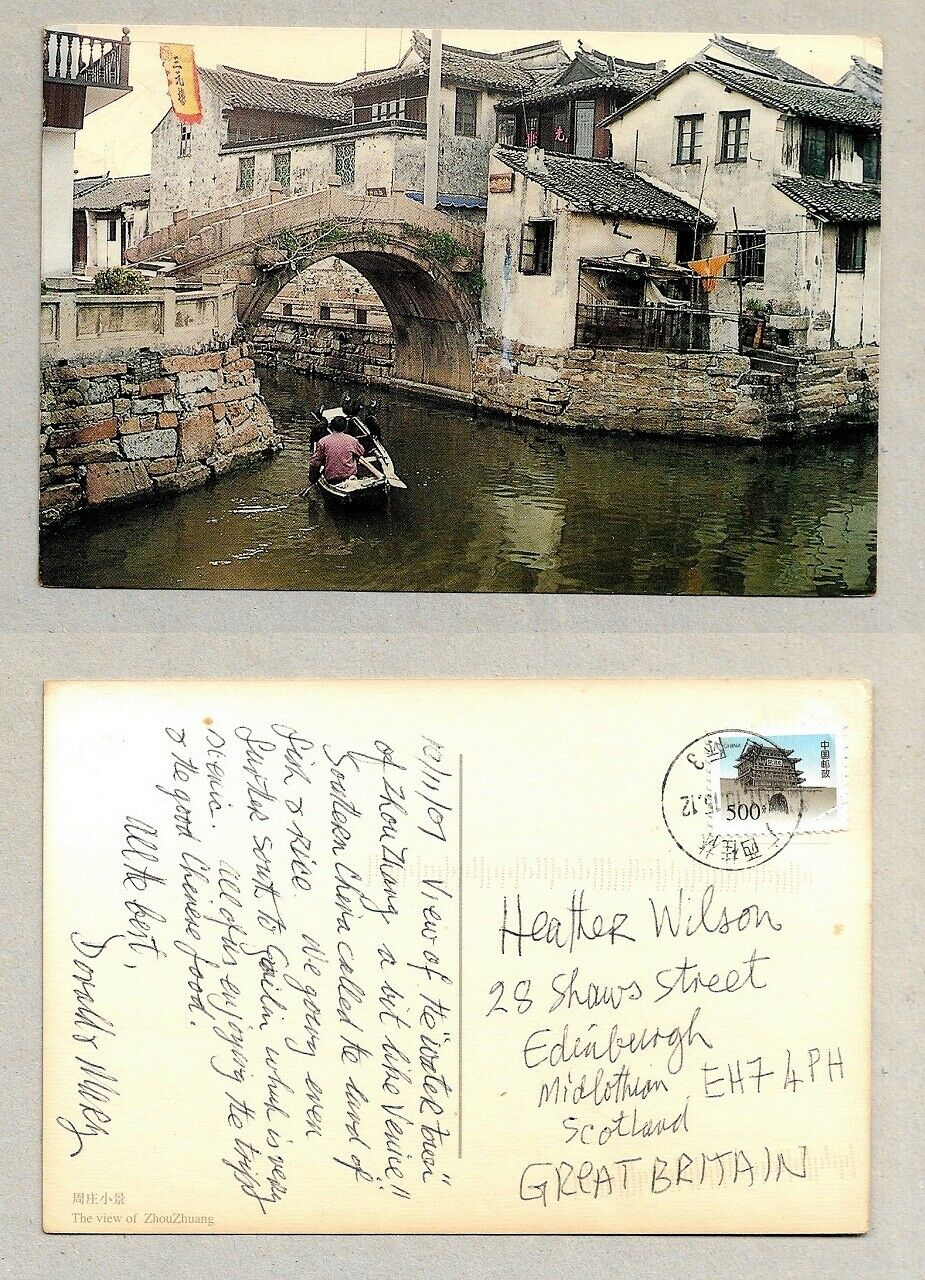 三元楼
元
10/11/01 View of the "water town"
of Zhou Zhang a bit like Venice!!
Southern China called the land of
fish & rice. We going even
further south to Guilin which is very
scenic. All of us enjoying the trip
& the good Chinese food.
All the best,
Donald & MARY
周庄小景
The view of ZhouZhuang
CHINA
中国邮政
500分
15.12
3
广西桂林
Heather Wilson
28 Shaws Street
Edinburgh
Midlothian EH7 4PH
Scotland
GREAT BRITAIN